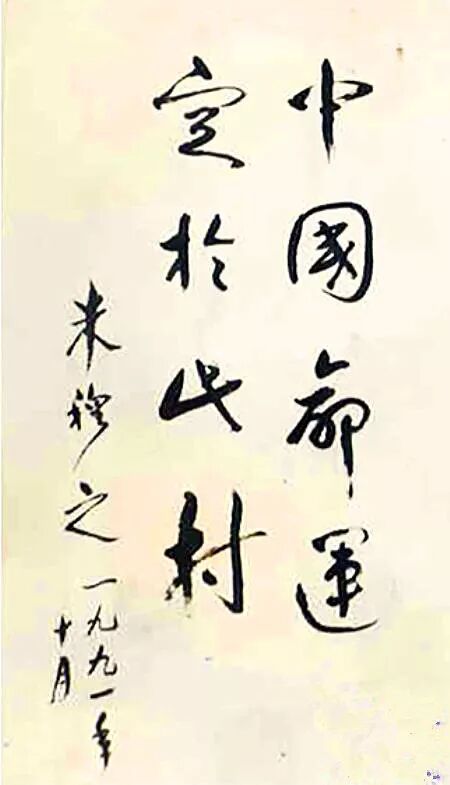 中國命運
定於此村
朱穆之
一九九一年
十月